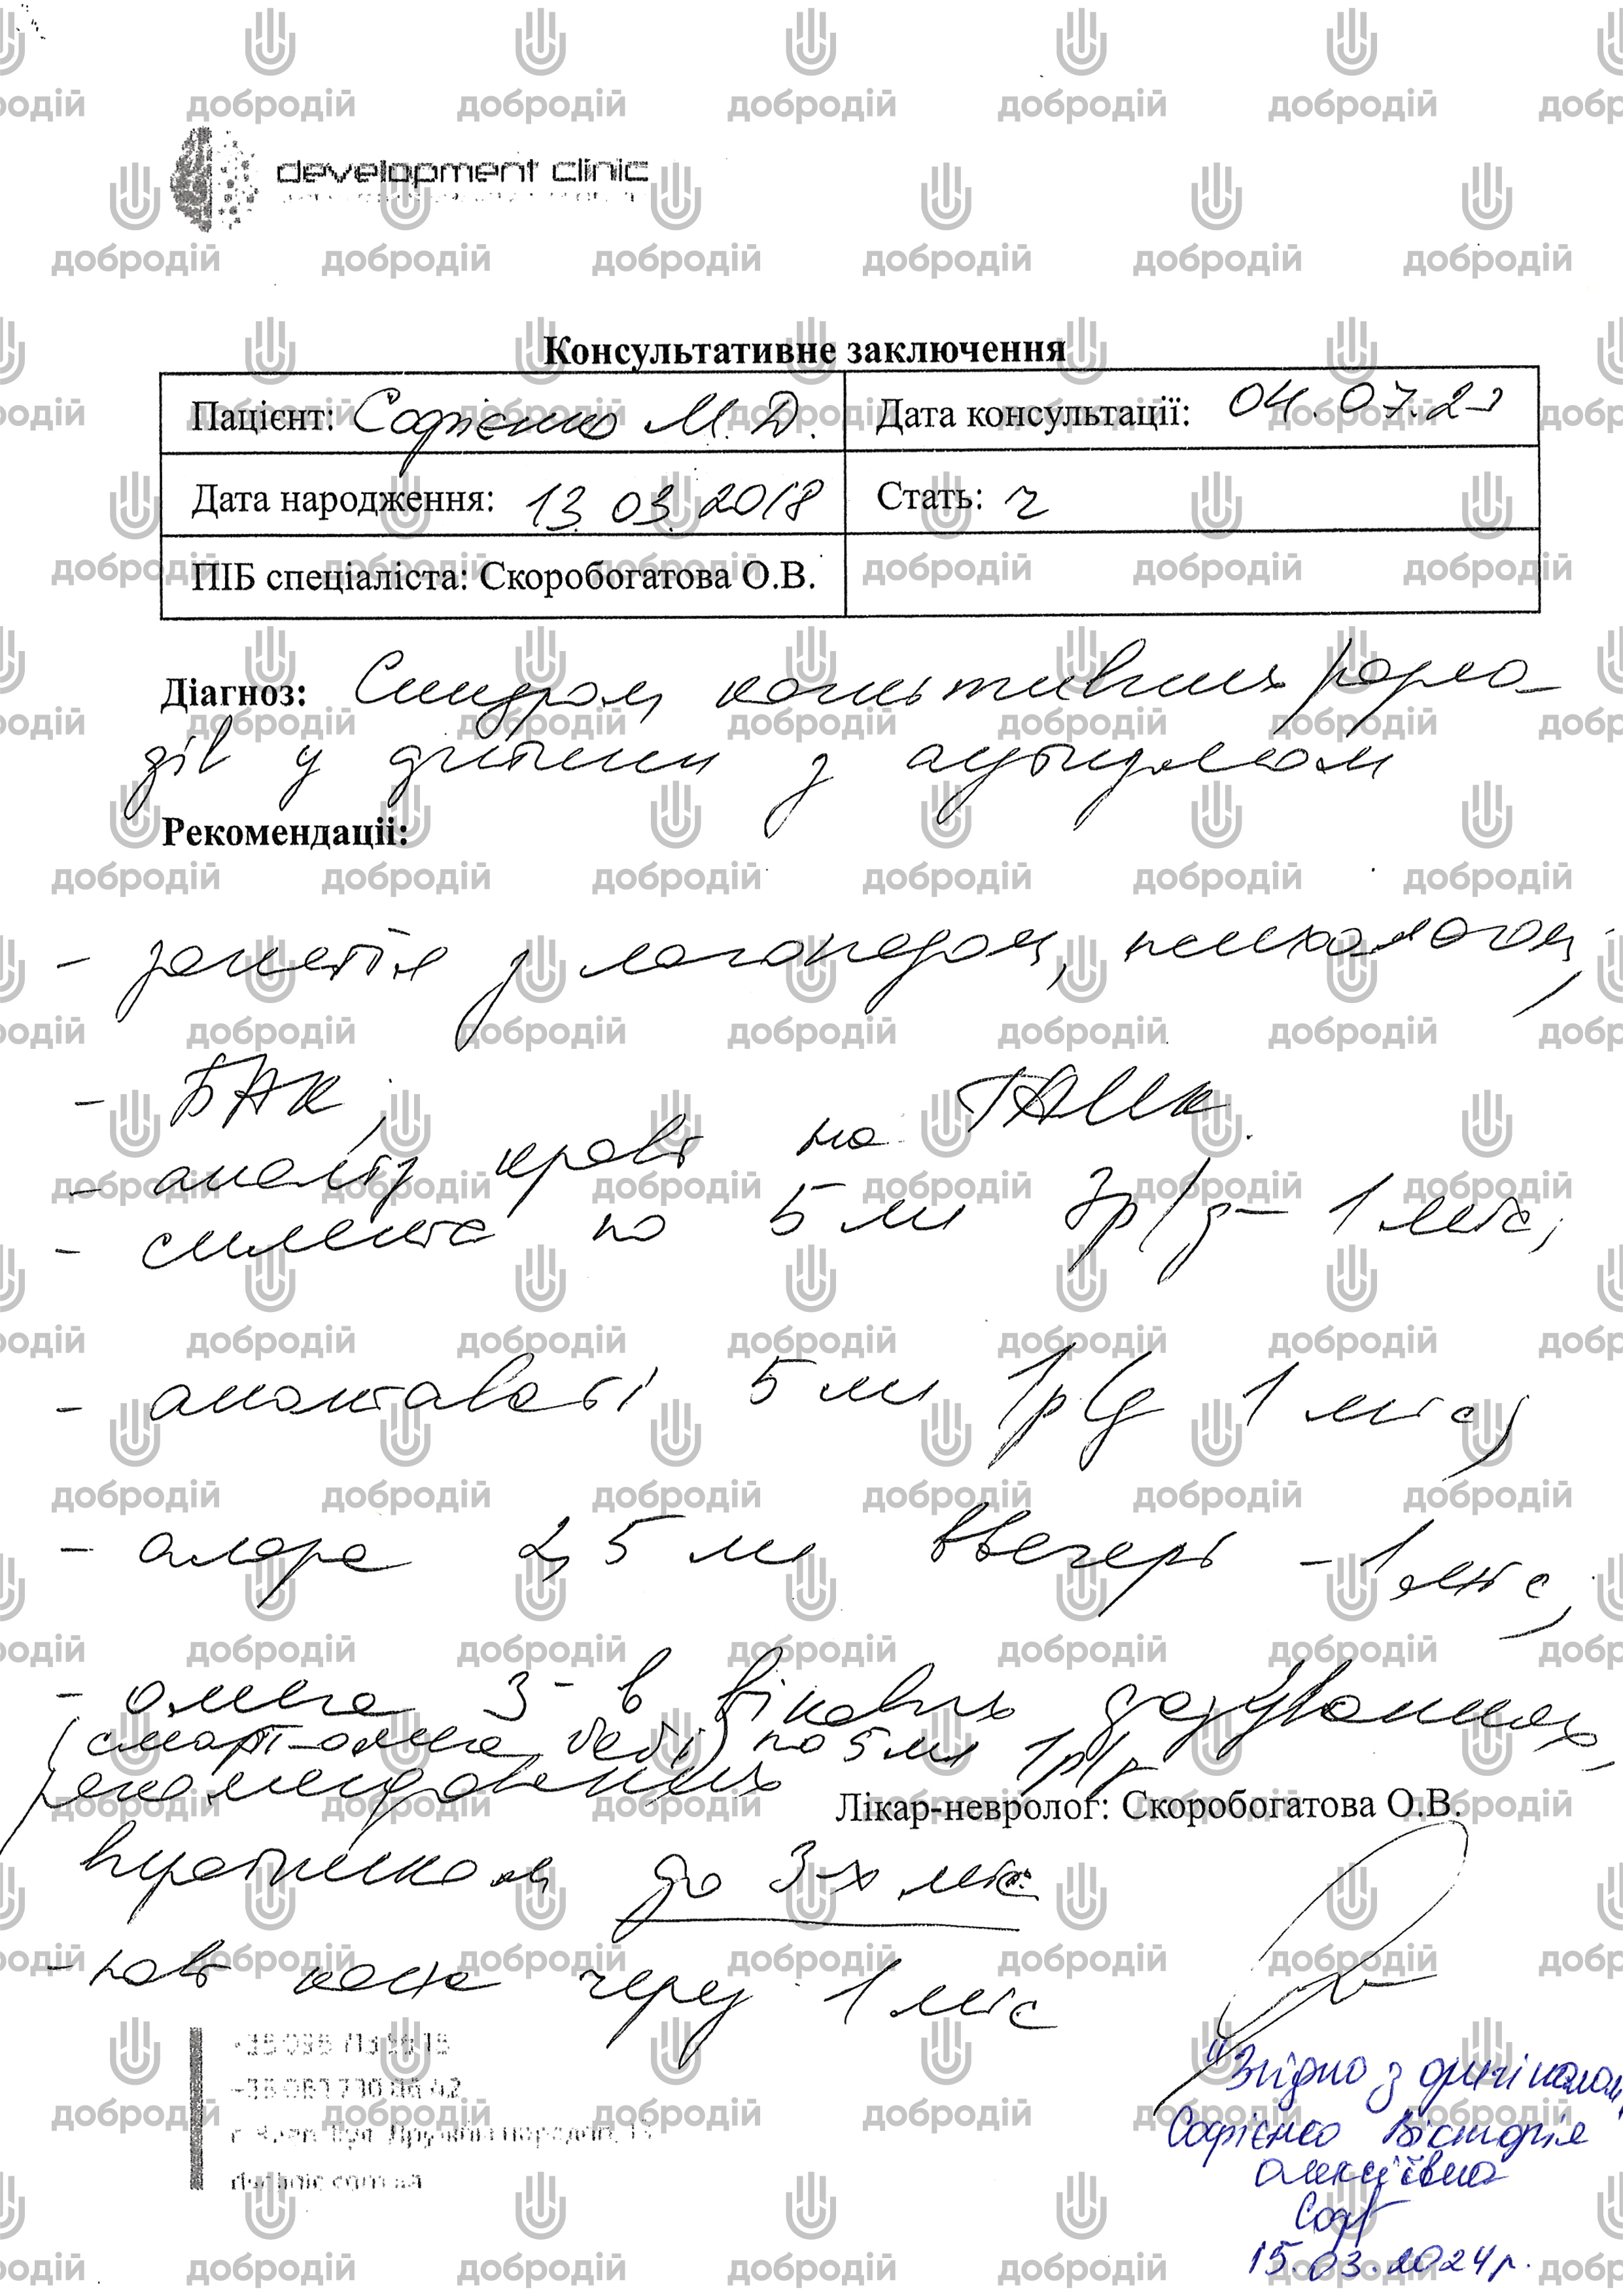 development clinic
Консультативне заключення
Пацієнт: Софієнко М. Д. Дата консультації: 04.07.23
Дата народження: 13.03.2018 Стать: ч
ПІБ спеціаліста: Скоробогатова О.В.
Діагноз: Синдром когнітивних розла-
дів у дитини з аутизмом
Рекомендації:
- заняття з логопедом, психологом,
- БАК,
- аналіз крові на ГАМК.
- смлента по 5 мл 3р/д - 1 міс,
- 5 мл 1р/д 1 міс,
- алора 2,5 мл ввечері - 1 міс,
- омега 3 - в вікових дозуваннях,
(смарт-омега бебі) по 5 мл 1р/д
рекомендованих
виробником до 3-х міс
Лікар-невролог: Скоробогатова О.В.
- повт конс через 1 міс
"Згідно з оригіналом"
Софієнко Вікторія
Олексіївна
Соф
15.03.2024 р.
добродій